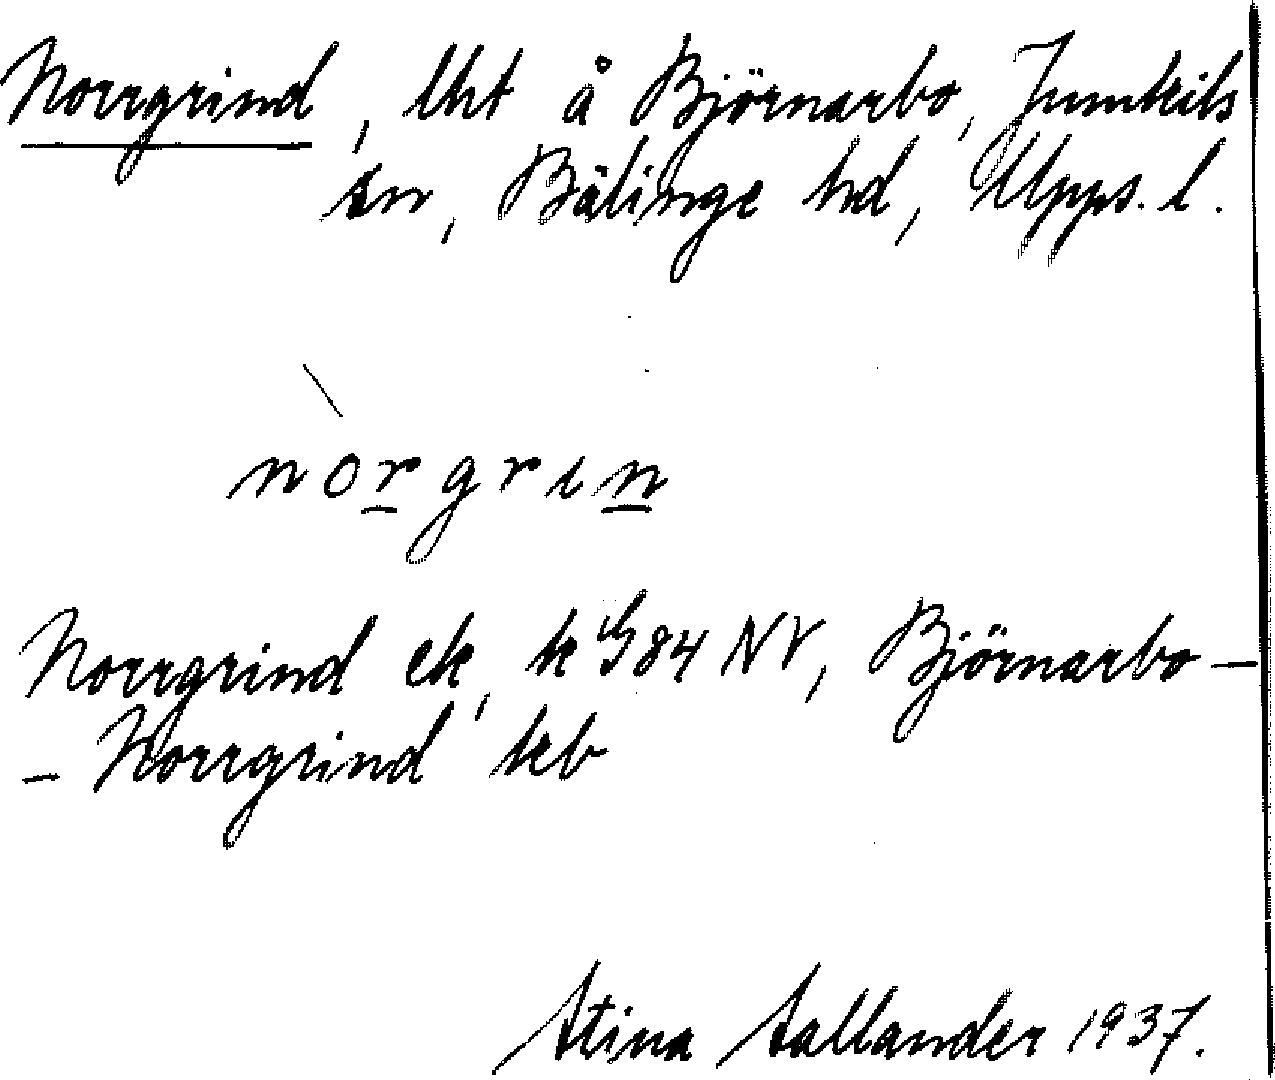 Norrgrind, lht å Björnarbo, Jumkils
sn, Bälinge hd, Upps. l.
nòrgrın
Norrgrind ek, k 84 NV, Björnarbo-
- Norrgrind keb
Stina Sallander 1937.